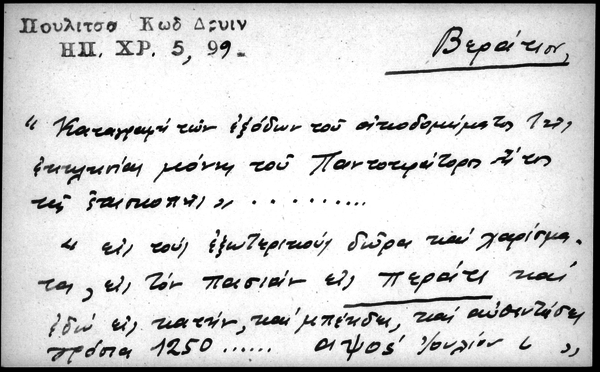 Πουλιτσα Κωδ Δρυιν
ΗΠ. ΧΡ. 5, 99.
Βεράτιον,
"Καταγραφή τῶν ἐξόδων τοῦ οἰκοδομήματος
ἐκκλησίας μόνης τοῦ Παντοκράτορος
τῆς ἐπισκοπῆς" .........
"εἰς τοὺς ἐξωτερικοὺς δῶρα καὶ χαρίσμα-
τα, εἰς τὸν πασιᾶν εἰς Περάτι καὶ
ἐδῶ εἰς κατὴν, καὶ μπέηδες, καὶ αὐθεντάδες
γρόσια 1250 ...... αψοε´ Ἰουλίου ι "